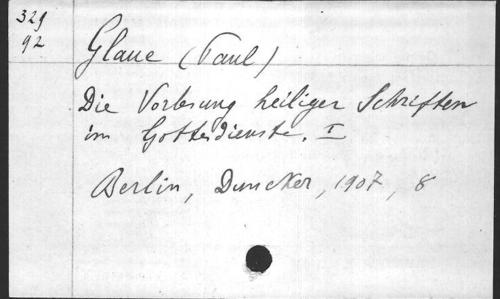 329
92
Glaue (Paul)
Die Vorlesung heiliger Schriften
im Gottesdienste. I
Berlin, Duncker, 1907, 8